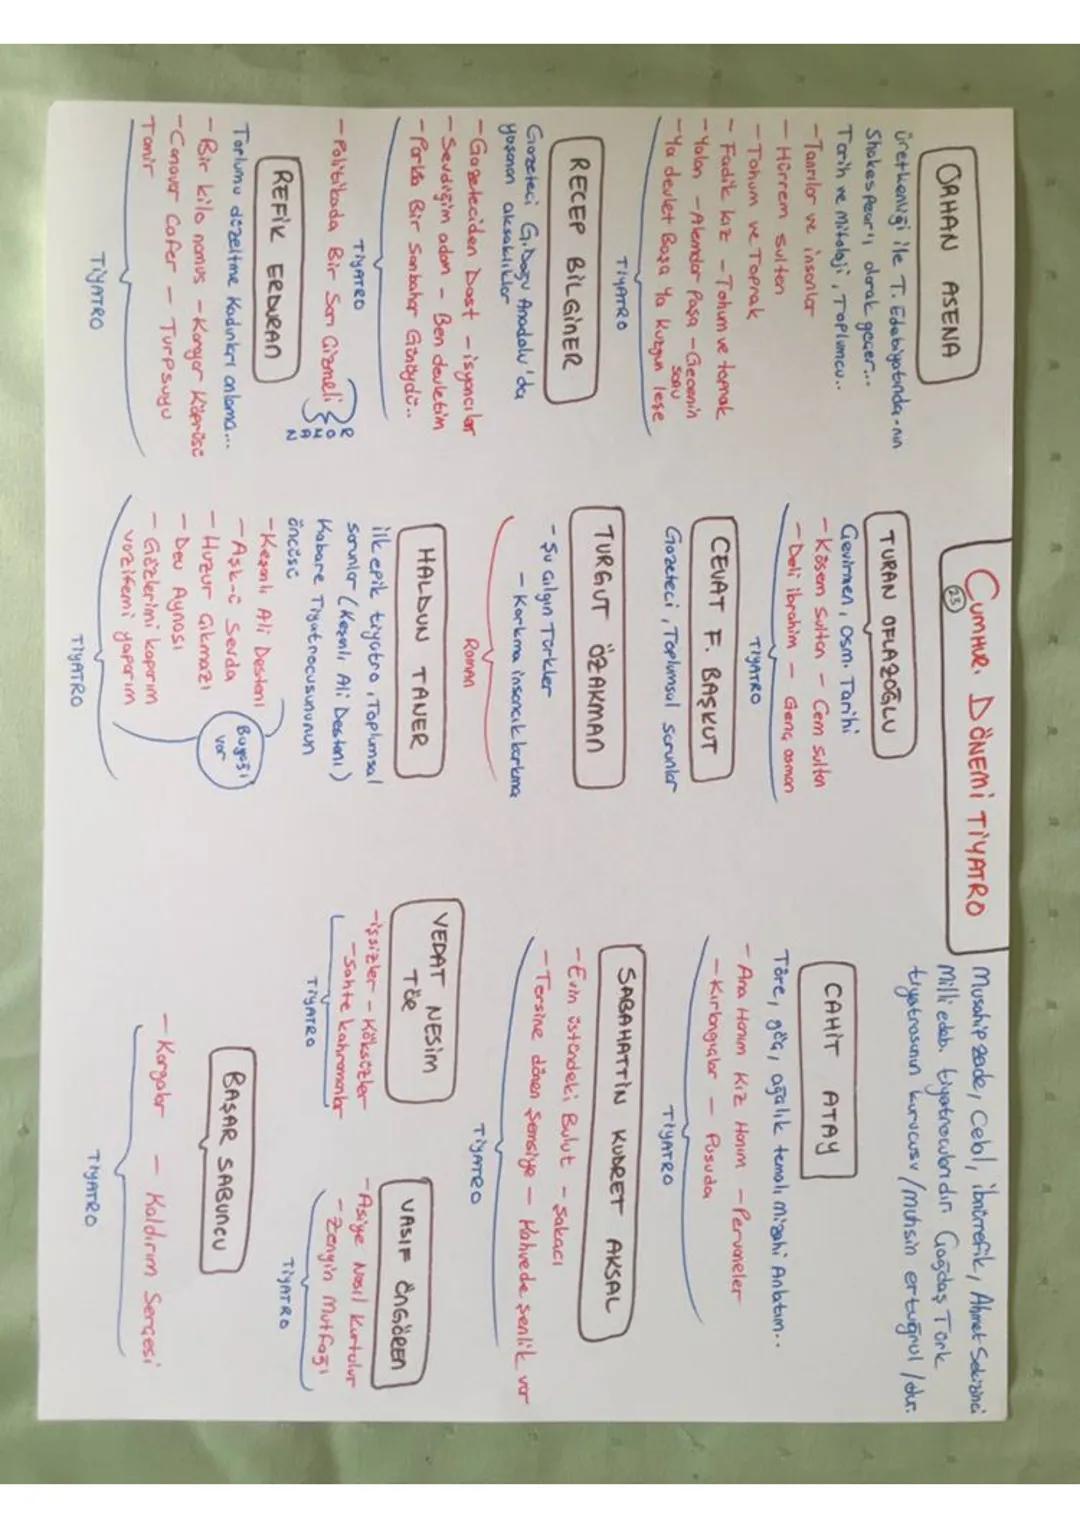 CUMHUR. DÖNEMİ TİYATRO
23
Musahipzade, Celal, ibnürrefik, Ahmet Sekizinci
Milli edeb. tiyatrocularıdır. Çağdaş Türk
tiyatrosunun kurucusu /muhsin ertuğrul/dur.
ORHAN ASENA
üretkenliği ile T. Edebiyatında-nın
Shakespear'ı olarak geçer...
Tarih ve mitoloji, Toplumcu..
- Tanrılar ve insanlar
- Hürrem sultan
- Tohum ve Toprak
- Fadik kız - Tohum ve toprak
- Yalan - Alemdar Paşa - Gecenin sonu
- Ya devlet Başa Ya kuzgun leşe
TİYATRO
RECEP BİLGİNER
Gazeteci G.Doğu Anadolu'da
yaşanan aksaklıklar
- Gazeteciden Dost - isyancılar
- Sevdiğim adam - Ben devletim
- Parkta Bir Sonbahar Günüydü..
TİYATRO
- Politikada Bir Sarı Çizmeli
ROMAN
REFİK ERDURAN
Toplumu düzeltme Kadınları anlama...
- Bir kilo namus - Karayar Köprüsü
- Canavar Cafer - Turp suyu
Tamir
TİYATRO
TURAN OFLAZOĞLU
Çevirmen, Osm. Tarihi
- Kösem Sultan - Cem sultan
- Deli ibrahim - Genç osman
TİYATRO
CEVAT F. BAŞKUT
Gazeteci, Toplumsal sorunlar
TURGUT ÖZAKMAN
- Şu Çılgın Türkler
- Korkma insancık korkma
Roman
HALDUN TANER
ilk epik tiyatro, Toplumsal
sorunlar (Keşanlı Ali Destanı)
Kabare Tiyatrocusununun
öncüsü
- Keşanlı Ali Destanı
- Aşk-û Sevda
- Huzur Çıkmazı
- Dev Aynası
- Gözlerimi kaparım
vazifemi yaparım
Buyeği var
TİYATRO
CAHİT ATAY
Töre, göç, ağalık temalı mizahi Anlatım..
- Ana Hanım Kız Hanım - Pervaneler
- Kırlangıçlar - Pusuda
TİYATRO
SABAHATTİN KUDRET AKSAL
- Evin üstündeki Bulut - Şakacı
- Tersine dönen Şemsiye - Kahvede şenlik var
TİYATRO
VEDAT NESİM
TÖR
- işsizler - Köksüzler
- Sahte kahramanlar
TİYATRO
VASIF ÖNGÖREN
- Asiye Nasıl Kurtulur
- Zengin Mutfağı
TİYATRO
BAŞAR SABUNCU
- Kargalar - Kaldırım Serçesi
TİYATRO